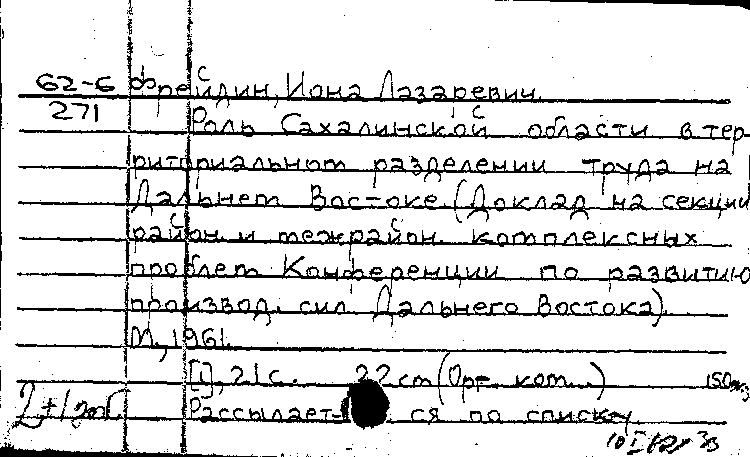 62-6 Фрейдин, Иона Лазаревич.
271 Роль Сахалинской области в тер-
риториальном разделении труда на
Дальнем Востоке. (Доклад на секции
район. и межрайон. комплексных
проблем Конференции по развитию
производ. сил Дальнего Востока).
М., 1961.
[1], 21 с. 22 см (Орг. ком.) 150 экз
Рассылается по списку